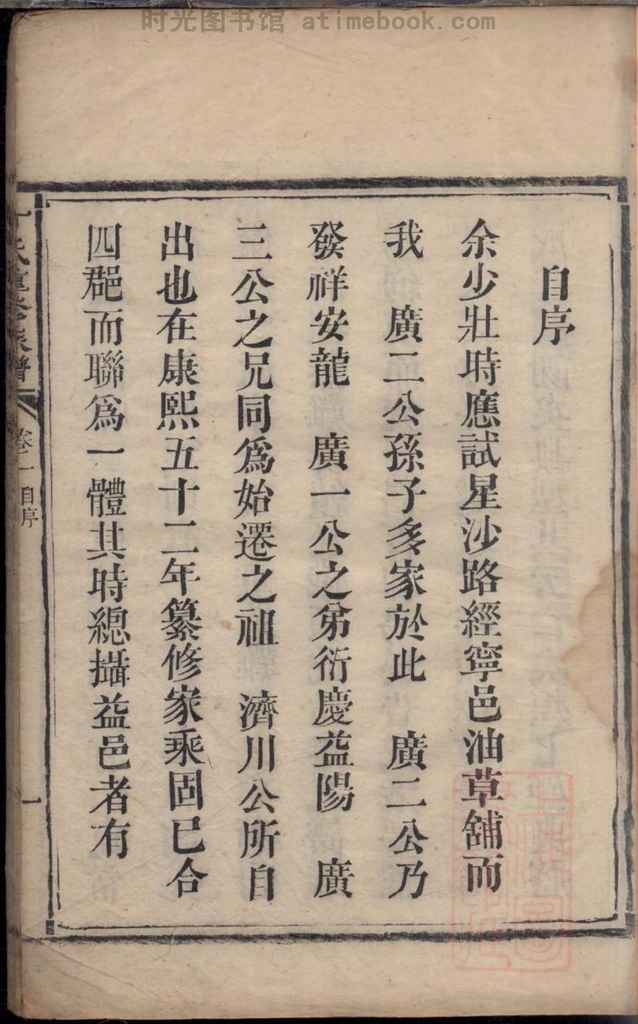 时光图书馆 atimebook.com
自序
余少壯時應試星沙路經寧邑油草舖而
我 廣二公孫子多家於此 廣二公乃
發祥安龍 廣一公之弟衍慶益陽 廣
三公之兄同爲始遷之祖 濟川公所自
出也在康熙五十二年纂修家乘固已合
四郡而聯爲一體其時總攝益邑者有
氏重修族譜 卷一 自序
一